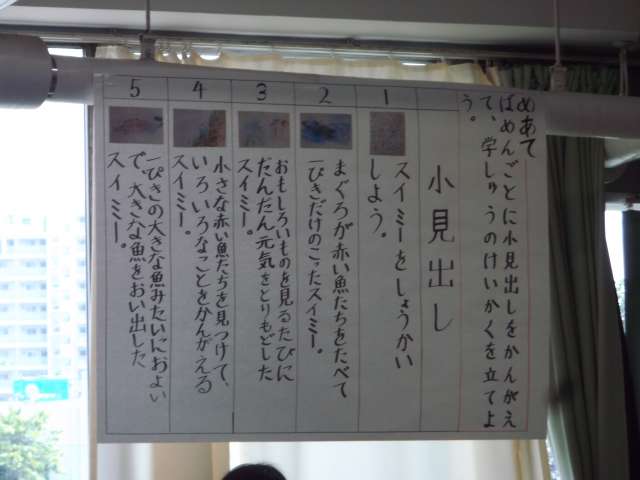 めあて
ばめんごとに小見出しをかんがえ
て、学しゅうのけいかくを立てよ
う。
小見出し
1
スイミーをしょうかい
しよう。
2
まぐろが赤い魚たちをたべて
一ぴきだけのこったスイミー。
3
おもしろいものを見るたびに
だんだん元気をとりもどした
スイミー。
4
小さな赤い魚たちを見つけて、
いろいろなことをかんがえる
スイミー。
5
一ぴきの大きな魚みたいにおよい
で、大きな魚をおい出した
スイミー。